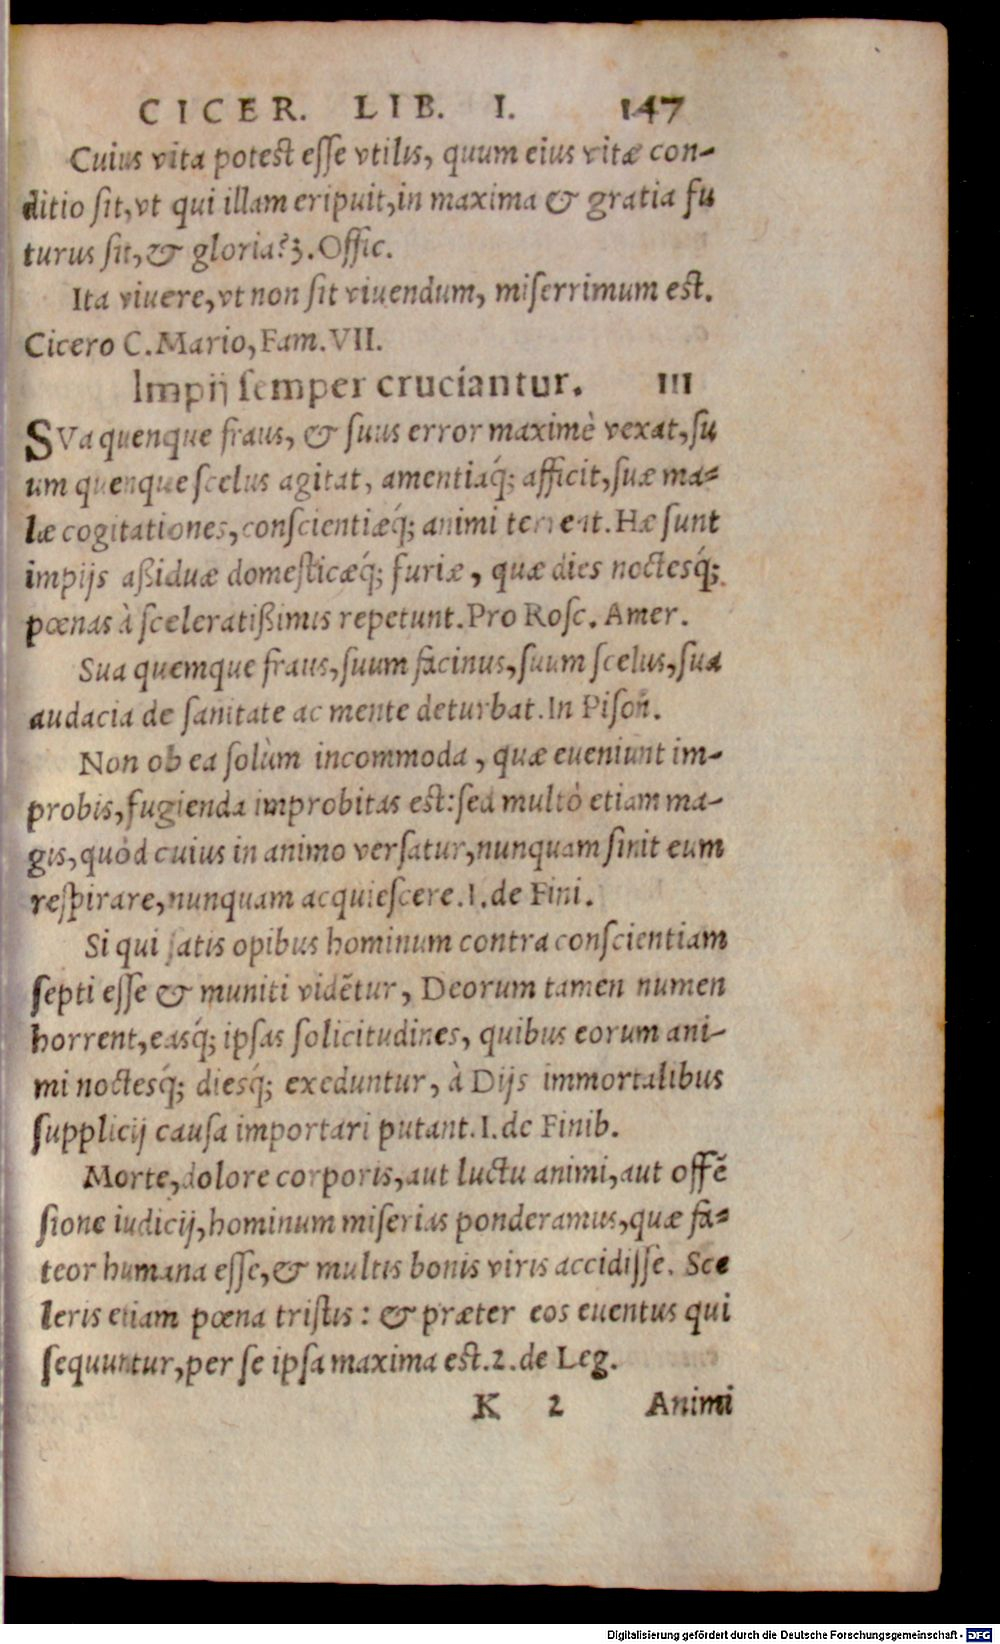 CICER. LIB. I. 147
Cuius vita potest esse vtilis, quum eius vitæ con-
ditio sit, vt qui illam eripuit, in maxima & gratia fu
turus sit, & gloria? 3. Offic.
Ita viuere, vt non sit viuendum, miserrimum est.
Cicero C. Mario, Fam. VII.
Impij semper cruciantur. III
SVa quenque fraus, & suus error maximè vexat, su
um quenque scelus agitat, amentiaq́; afficit, suæ ma-
læ cogitationes, conscientiæq́; animi terrent. Hæ sunt
impijs aßiduæ domesticæq́; furiæ, quæ dies noctesq́;
pœnas à sceleratißimis repetunt. Pro Rosc. Amer.
Sua quemque fraus, suum facinus, suum scelus, sua
audacia de sanitate ac mente deturbat. In Pisoñ.
Non ob ea solùm incommoda, quæ eueniunt im-
probis, fugienda improbitas est: sed multò etiam ma-
gis, quòd cuius in animo versatur, nunquam sinit eum
respirare, nunquam acquiescere. I. de Fini.
Si qui satis opibus hominum contra conscientiam
septi esse & muniti vidētur, Deorum tamen numen
horrent, easq́; ipsas solicitudines, quibus eorum ani-
mi noctesq́; diesq́; exeduntur, à Dijs immortalibus
supplicij causa importari putant. I. de Finib.
Morte, dolore corporis, aut luctu animi, aut offē
sione iudicij, hominum miserias ponderamus, quæ fa-
teor humana esse, & multis bonis viris accidisse. Sce
leris etiam pœna tristis: & præter eos euentus qui
sequuntur, per se ipsa maxima est. 2. de Leg.
K 2 Animi
Digitalisierung gefördert durch die Deutsche Forschungsgemeinschaft - DFG